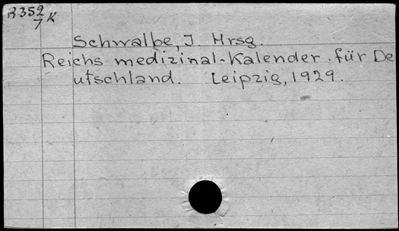 R352
7K
Schwalbe, J. Hrsg.
Reichs medizinal-Kalender für De
utschland. Leipzig, 1929.